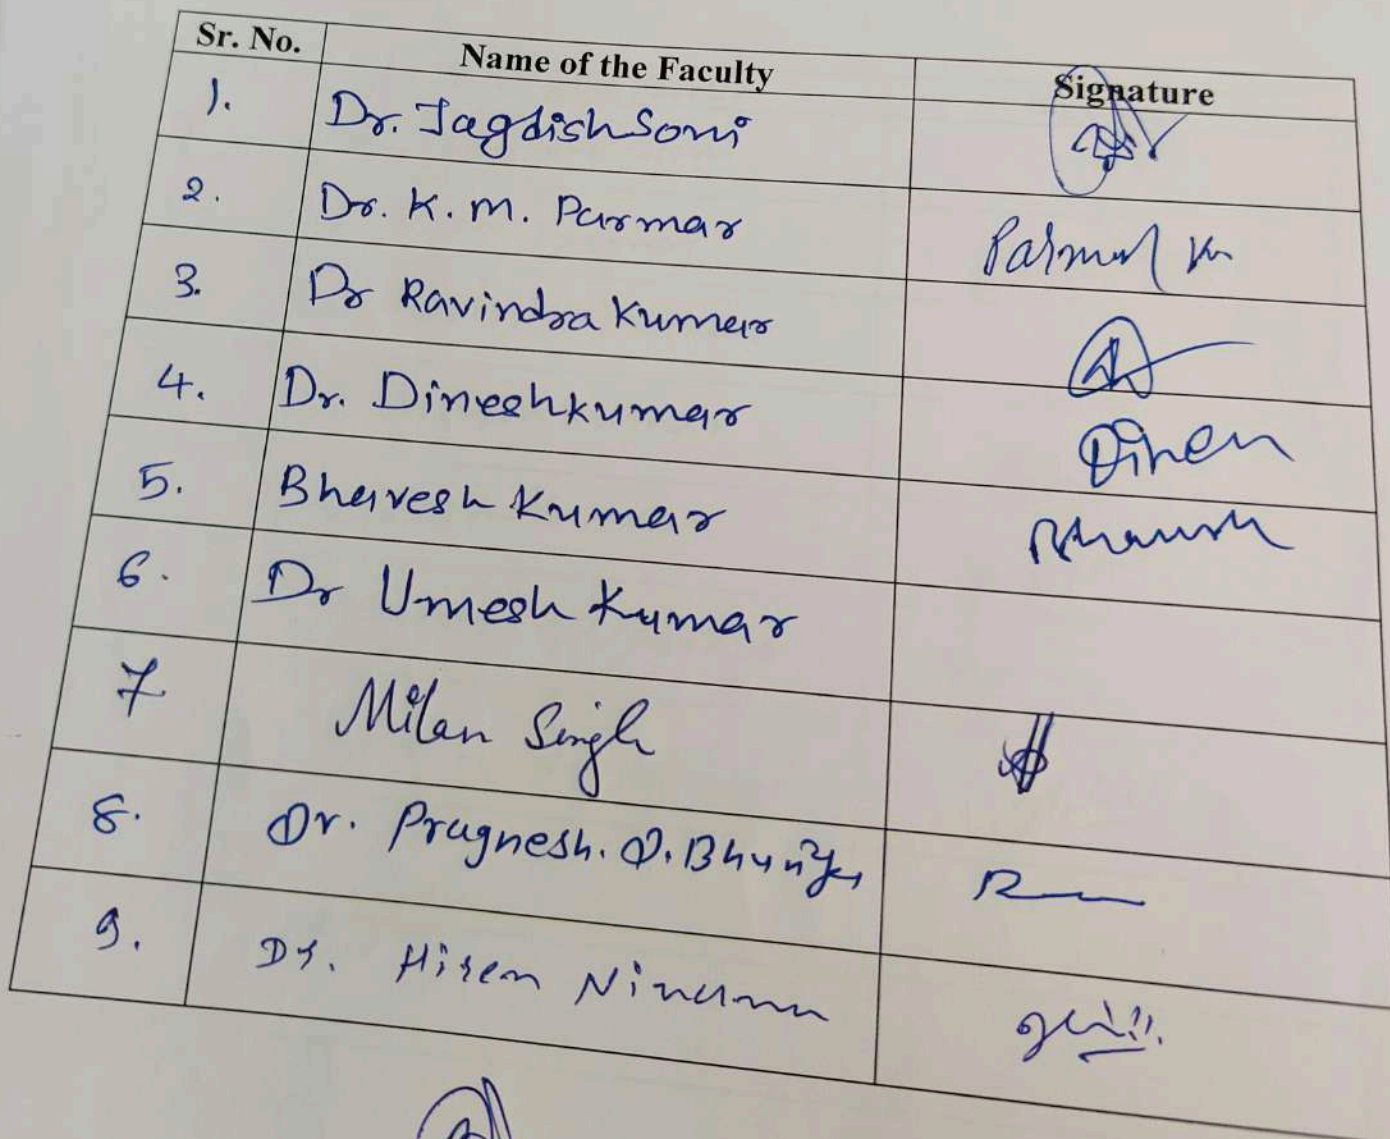 Sr. No. Name of the Faculty Signature
1. Dr. Jagdish Soni
2. Dr. K. M. Parmar Parmar Km
3. Dr Ravindra Kumar
4. Dr. Dineshkumar Dinesh
5. Bhavesh Kumar Bhavesh
6. Dr Umesh Kumar
7 Milan Singh
8. Dr. Pragnesh. D.
9. Dr. Hiren Ninama